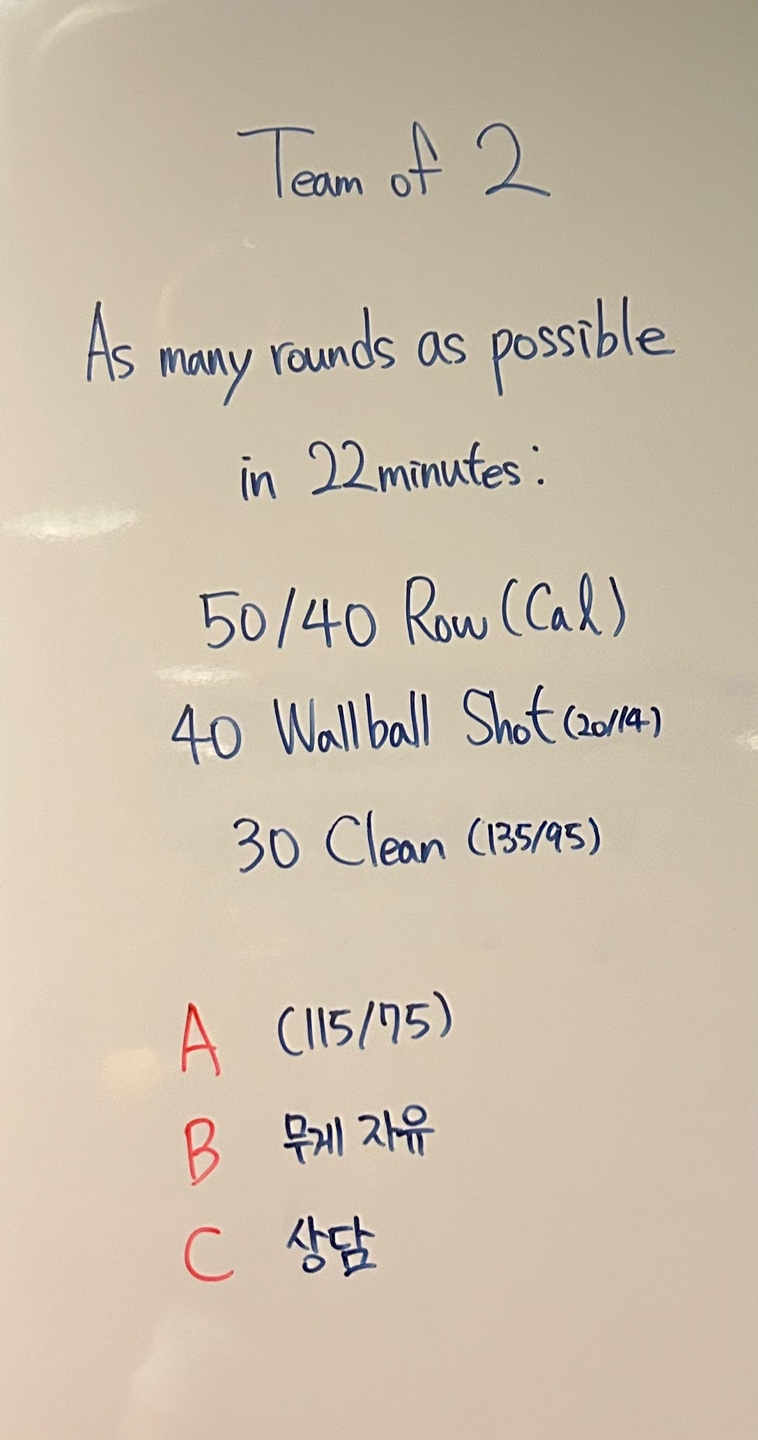 Team of 2
As many rounds as possible
in 22minutes:
50/40 Row (Cal)
40 Wallball Shot (20/14)
30 Clean (135/95)
A (115/75)
B 무게 자유
C 상담